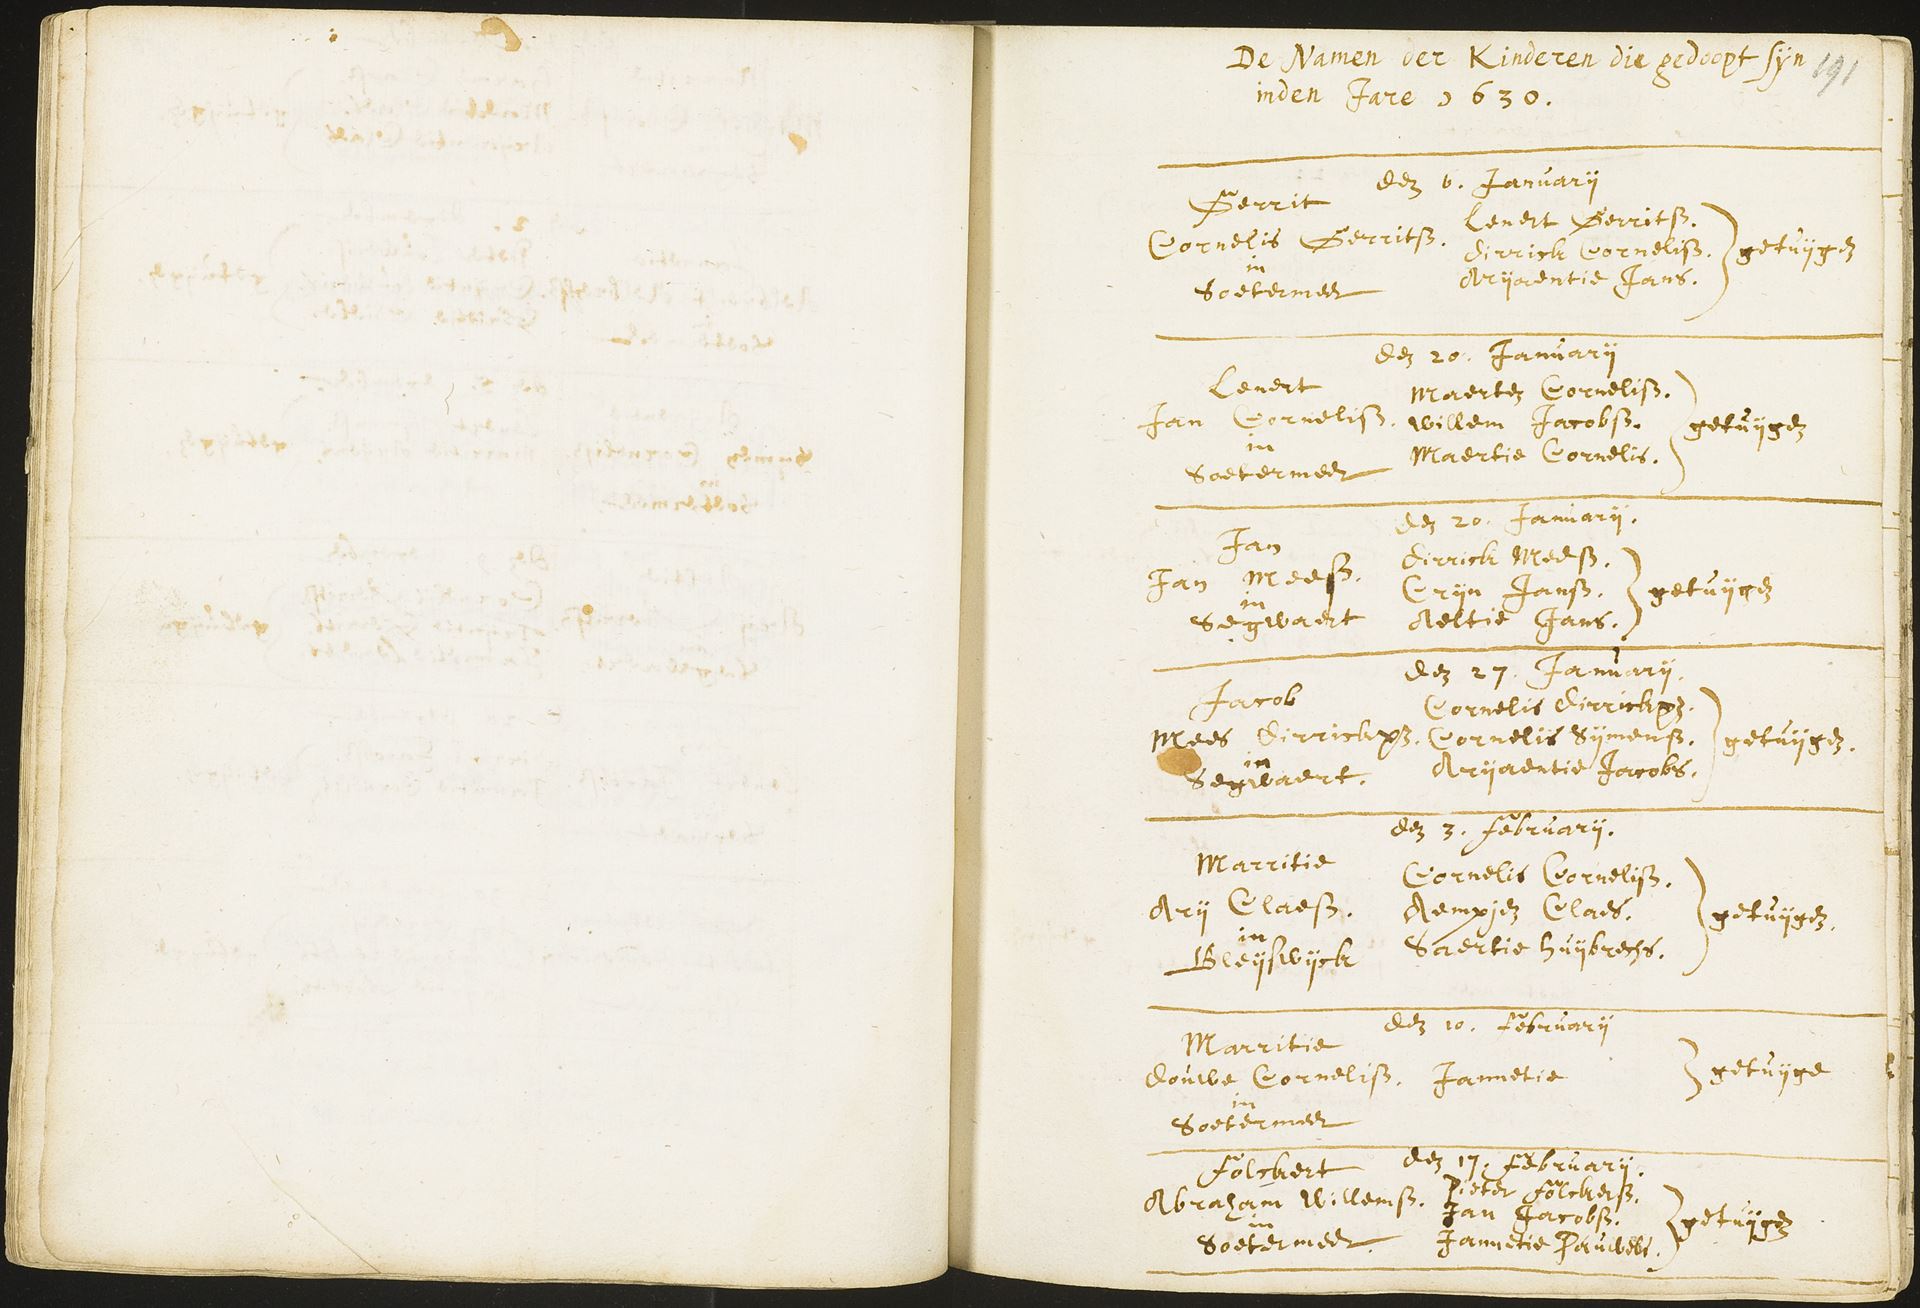 De Namen der Kinderen die gedoopt sijn
inden Jare 1630.
191
den 6. Januarij
Gerrit
Cornelis Gerritsz.
in
Soetermeer
Lenert Gerritsz.
Dirrick Cornelisz.
Arijaentie Jans.
getuijgen
den 20. Januarij
Lenert
Jan Cornelisz.
in
Soetermeer
Maerten Cornelisz.
Willem Jacobsz.
Maertie Cornelis.
getuijgen
den 20. Januarij.
Jan
Jan Meesz.
in
Segwaert
Dirrick Meesz.
Crijn Jansz.
Aeltie Jans.
getuijgen
den 27. Januarij.
Jacob
Mees Dirrickxz.
in
Segwaert.
Cornelis Dirrickxz.
Cornelis Sijmensz.
Arijaentie Jacobs.
getuijgen.
den 3. februarij.
Marritie
Arij Claesz.
in
Bleijswijck
Cornelis Cornelisz.
Claes.
Saertie huijbrechs.
getuijgen.
den 10. februarij
Marritie
Douwe Cornelisz.
in
Soetermeer
Jannetie
getuijge
den 17. februarij.
folckert
Abraham Willemsz.
in
Soetermeer
Pieter folckersz.
Jan Jacobsz.
Jannetie Pauwels.
getuijgen